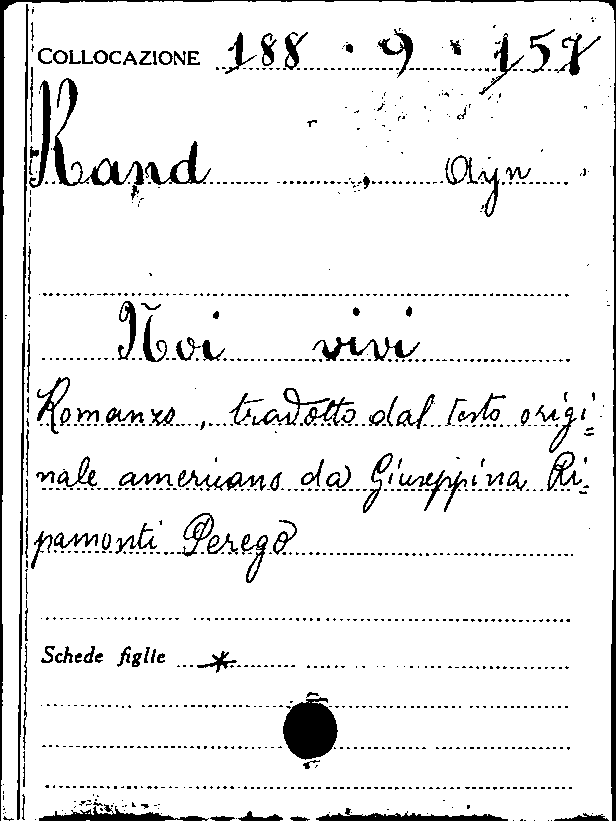 COLLOCAZIONE 188 . 9 . 157
Rand , Ayn
Noi vivi
Romanzo, tradotto dal testo origi=
nale americano da Giuseppina Ri=
pamonti Perego
Schede figlie *